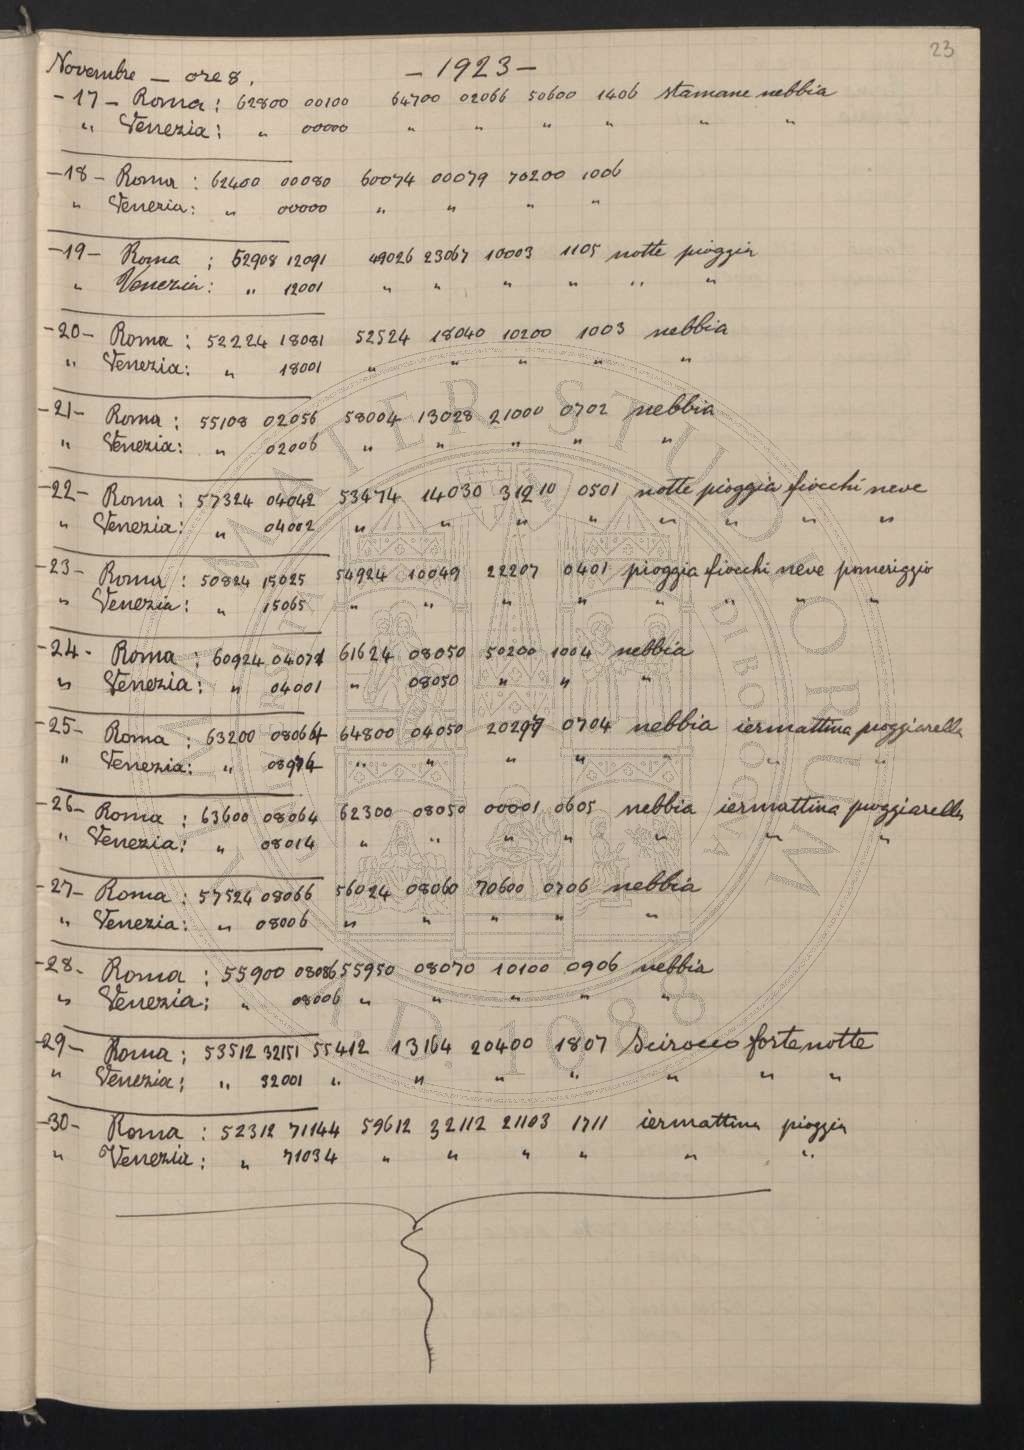 23
Novembre — ore 8. — 1923 —
— 17 — Roma : 62800 00100 64700 02066 50600 1406 stamane nebbia
" Venezia : " 00000 " " " " " "
— 18 — Roma : 62400 00080 60074 00079 70200 1006
" Venezia : " 00000 " " " "
— 19 — Roma : 52908 12091 49026 23067 10003 1105 notte pioggia
" Venezia : " 12001 " " " " " "
— 20 — Roma : 52224 18081 52524 18040 10200 1003 nebbia
" Venezia : " 18001 " " " " "
— 21 — Roma : 55108 02056 58004 13028 21000 0702 nebbia
" Venezia : " 02006 " " " " "
— 22 — Roma : 57324 04042 53474 14030 31210 0501 notte pioggia fiocchi neve
" Venezia : " 04002 " " " " " " " "
— 23 — Roma : 50824 15025 54924 10049 22207 0401 pioggia fiocchi neve pomeriggio
" Venezia : " 15065 " " " " " " " "
— 24 - Roma : 60924 04071 61624 08050 50200 1004 nebbia
" Venezia : " 04001 " 08050 " " "
— 25 - Roma : 63200 08064 64800 04050 20297 0704 nebbia iermattina pioggiarella
" Venezia : " 08974 " " " " " " "
— 26 - Roma : 63600 08064 62300 08050 00001 0605 nebbia iermattina pioggiarella
" Venezia : " 08014 " " " " " " "
— 27 — Roma : 57524 08066 56024 08060 70600 0706 nebbia
" Venezia : " 08006 " " " " "
— 28 - Roma : 55900 08086 55950 08070 10100 0906 nebbia
" Venezia : " 08006 " " " " "
— 29 — Roma : 53512 32151 55412 13164 20400 1807 Scirocco forte notte
" Venezia : " 32001 " " " " " " "
— 30 — Roma : 52312 71144 59612 32112 21103 1711 iermattina pioggia
" Venezia : " 71034 " " " " " "
ALMA MATER STUDIORUM
A.D. 1088